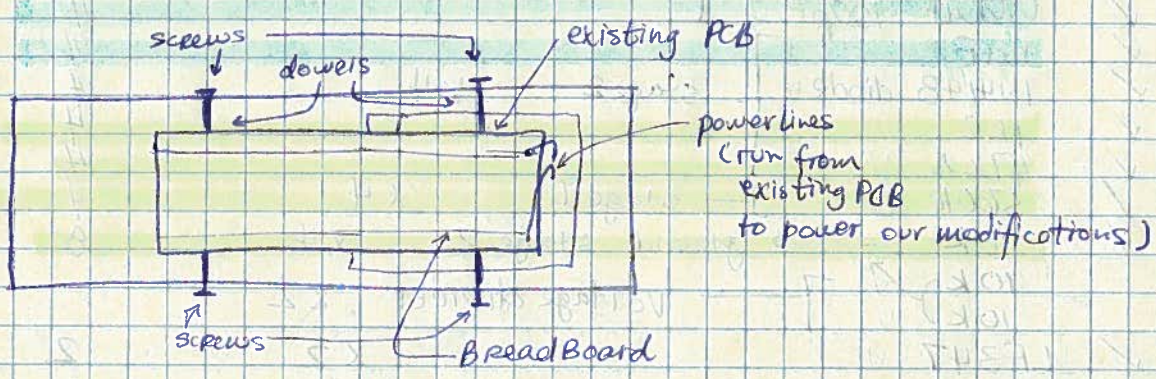 screws
existing PCB
dowels
powerlines
(run from
existing PCB
to power our modifications)
10K
10K
screws
BreadBoard